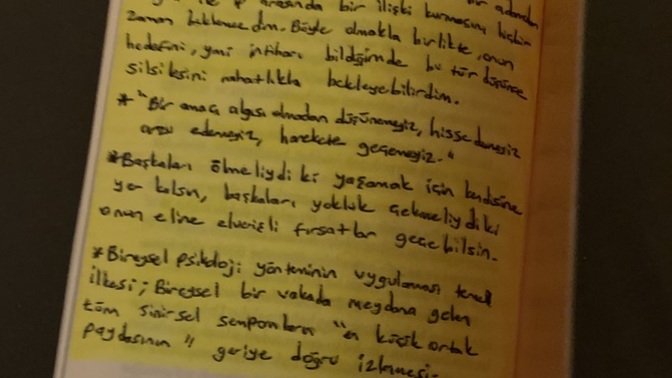 arasında bir ilişki kurmasını hiçbir
zaman beklemezdim. Böyle olmakla birlikte, onun
hedefini, yani intiharı bildiğimde bu tür düşünce
silsilesini rahatlıkla bekleyebilirdim.
* "Bir amaç algısı olmadan düşünemeyiz, hissedemeyiz
arzu edemeyiz, harekete geçemeyiz."
* Başkaları ölmeliydi ki yaşamak için kendisine
yer kalsın, başkaları yokluk çekmeliydi ki
onun eline elverişli fırsatlar geçebilsin.
* Bireysel psikoloji yönteminin uygulaması temel
ilkesi; Bireysel bir vakada meydana gelen
tüm sinirsel semponların "en küçük ortak
paydasının" geriye doğru izlenmesi-